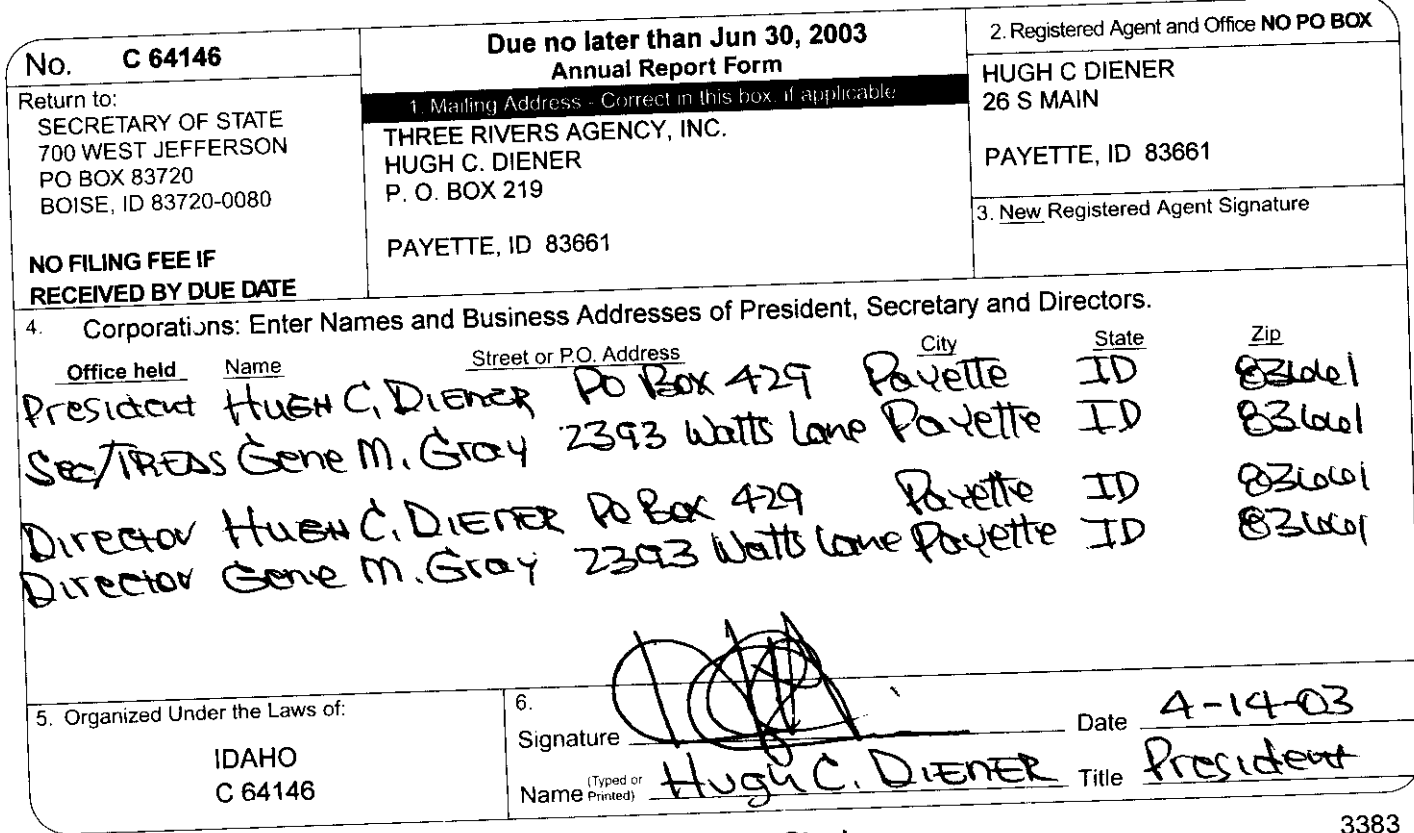 No. C 64146
Return to:
SECRETARY OF STATE
700 WEST JEFFERSON
PO BOX 83720
BOISE, ID 83720-0080
NO FILING FEE IF
RECEIVED BY DUE DATE
Due no later than Jun 30, 2003
Annual Report Form
1. Mailing Address - Correct in this box, if applicable
THREE RIVERS AGENCY, INC.
HUGH C. DIENER
P. O. BOX 219
PAYETTE, ID 83661
2. Registered Agent and Office NO PO BOX
HUGH C DIENER
26 S MAIN
PAYETTE, ID 83661
3. New Registered Agent Signature
4. Corporations: Enter Names and Business Addresses of President, Secretary and Directors.
Office held Name Street or P.O. Address City State Zip
President HUGH C. DIENER PO Box 429 Payette ID 83661
Sec/TREAS Gene M. Gray 2393 Watts Lane Payette ID 83661
Director HUGH C. DIENER PO Box 429 Payette ID 83661
Director Gene M. Gray 2393 Watts Lane Payette ID 83661
5. Organized Under the Laws of:
IDAHO
C 64146
6.
Signature Date 4-14-03
Name (Typed or Printed) Hugh C. DIENER Title President
3383